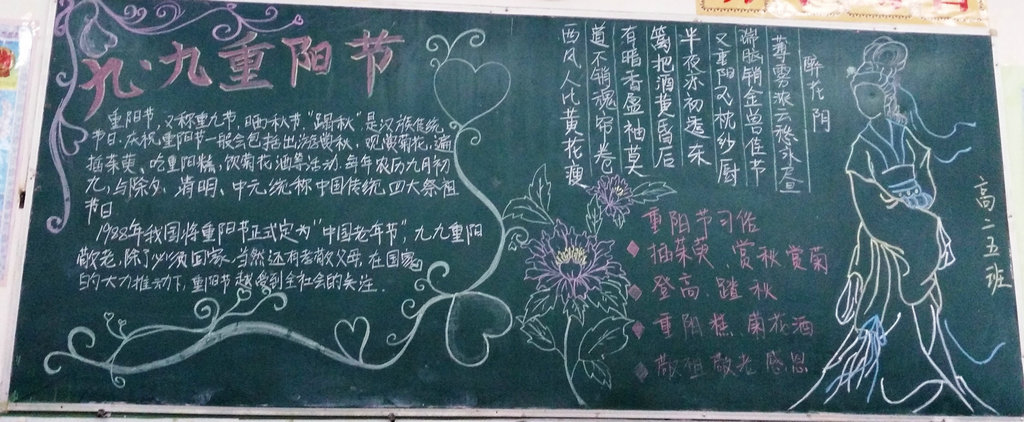 九·九重阳节
重阳节,又称重九节,晒秋节"踢秋",是汉族传统
节日.庆祝重阳节一般会包括出游赏秋、观赏菊花,遍
插茱萸、吃重阳糕,饮菊花酒等活动.每年农历九月初
九,与除夕、清明、中元统称中国传统四大祭祖
节日
1988年我国将重阳节正式定为"中国老年节",九九重阳
敬老,除了必须国家,当然还有者敬父母,在国家
的大力推动下,重阳节越受到全社会的关注.
醉花阴
薄雾浓云愁永昼
瑞脑销金兽佳节
又重阳玉枕纱厨
半夜凉初透东
篱把酒黄昏后
有暗香盈袖莫
道不销魂帘卷
西风人比黄花瘦
重阳节习俗
插茱萸、赏秋赏菊
登高、踏秋
重阳糕、菊花酒
敬祖敬老感恩
高二五班